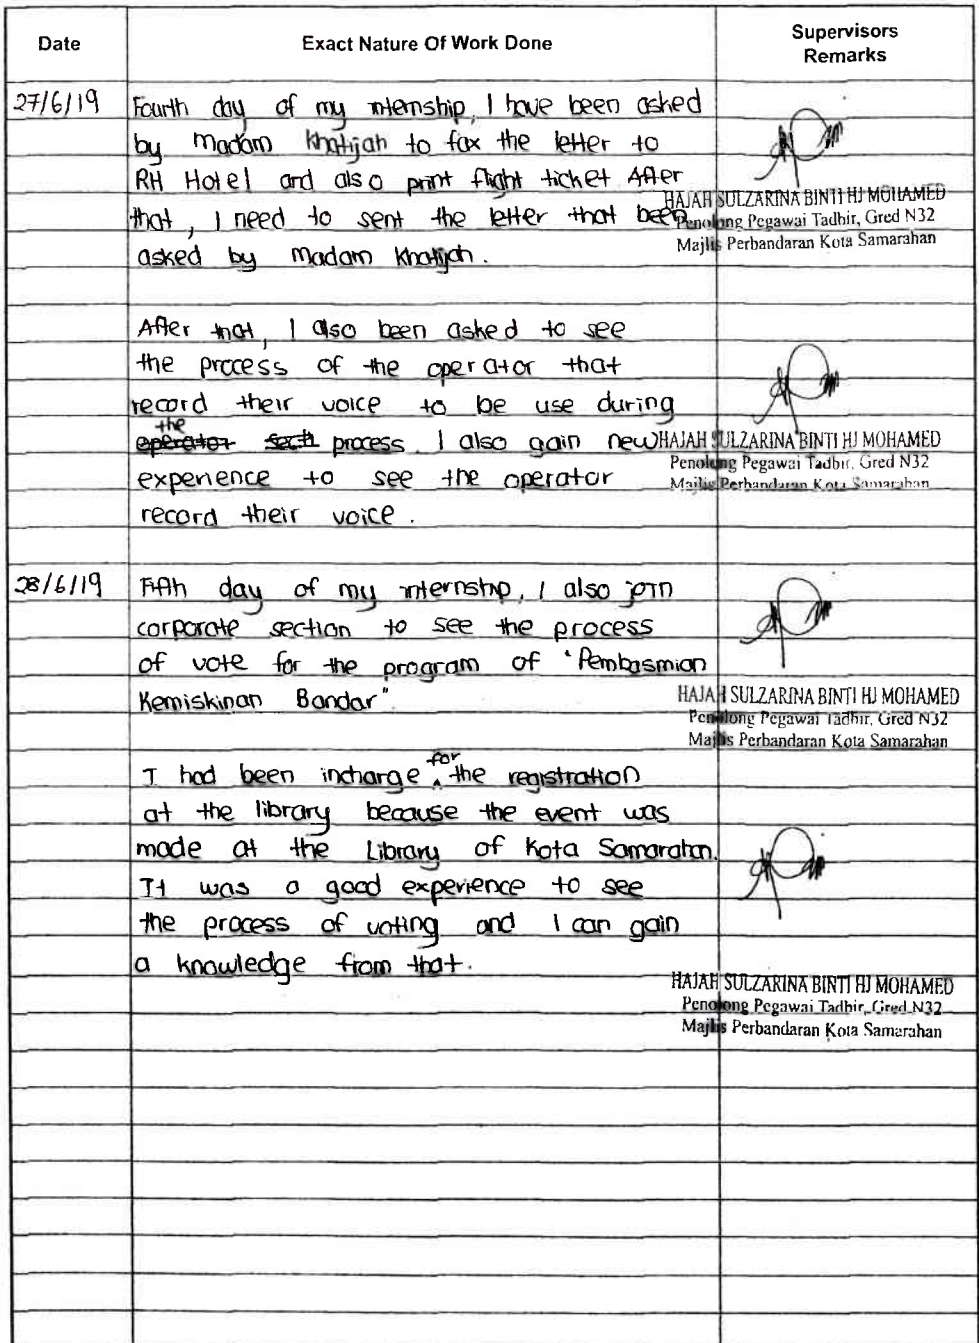 Date
Exact Nature Of Work Done
Supervisors
Remarks
27/6/19
Fourth day of my internship, I have been asked
by Madam Khatijah to fax the letter to
RH Hotel and also print flight ticket After
that, I need to sent the letter that been
asked by Madam Khatijah.
HAJAH SULZARINA BINTI HJ MOHAMED
Penolong Pegawai Tadbir, Gred N32
Majlis Perbandaran Kota Samarahan
After that, I also been asked to see
the process of the operator that
record their voice to be use during
the
operator process. I also gain new
experience to see the operator
record their voice.
HAJAH SULZARINA BINTI HJ MOHAMED
Penolong Pegawai Tadbir, Gred N32
Majlis Perbandaran Kota Samarahan
28/6/19
Fifth day of my internship, I also join
corporate section to see the process
of vote for the program of "Pembasmian
Kemiskinan Bandar"
HAJAH SULZARINA BINTI HJ MOHAMED
Penolong Pegawai Tadbir, Gred N32
Majlis Perbandaran Kota Samarahan
I had been incharge for the registration
at the library because the event was
made at the Library of Kota Samarahan.
It was a good experience to see
the process of voting and I can gain
a knowledge from that.
HAJAH SULZARINA BINTI HJ MOHAMED
Penolong Pegawai Tadbir, Gred N32
Majlis Perbandaran Kota Samarahan